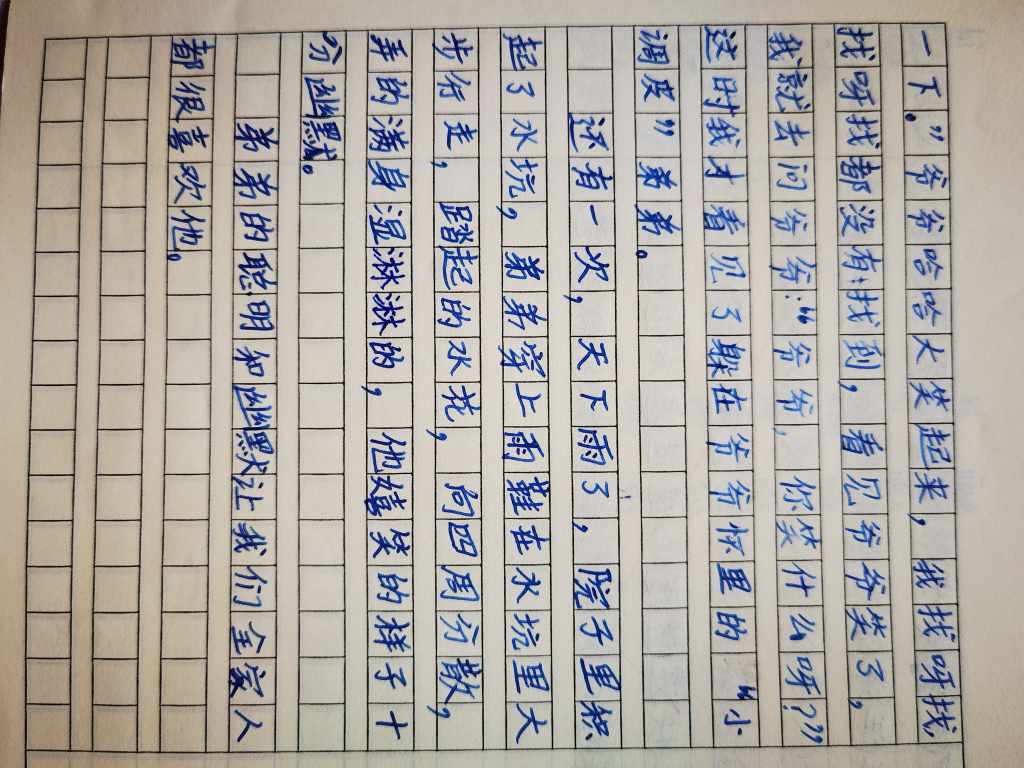 一下。”爷爷哈哈大笑起来，我找呀找，
找呀找都没有找到，看见爷爷笑了，
我就去问爷爷：“爷爷，你笑什么呀？”
这时我才看见了躲在爷爷怀里的“小
调皮”弟弟。
还有一次，天下雨了，院子里积
起了水坑，弟弟穿上雨鞋在水坑里大
步行走，踏起的水花，向四周分散，
弄的满身湿淋淋的，他嬉笑的样子十
分幽默。
弟弟的聪明和幽默让我们全家人
都很喜欢他。